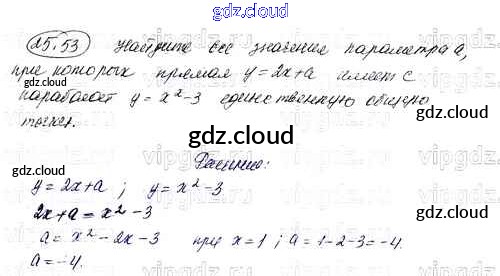 gdz.cloud
25.53 Найдите все значения параметра a,
при которых прямая y = 2x+a имеет с
параболой y = x² - 3 единственную общую
точку.
gdz.cloud
Решение:
y = 2x+a ; y = x² - 3
2x+a = x² - 3
a = x² - 2x - 3 при x = 1 ; a = 1-2-3 = -4.
a = -4.
gdz.cloud
gdz.cloud
gdz.cloud
gdz.cloud
gdz.cloud